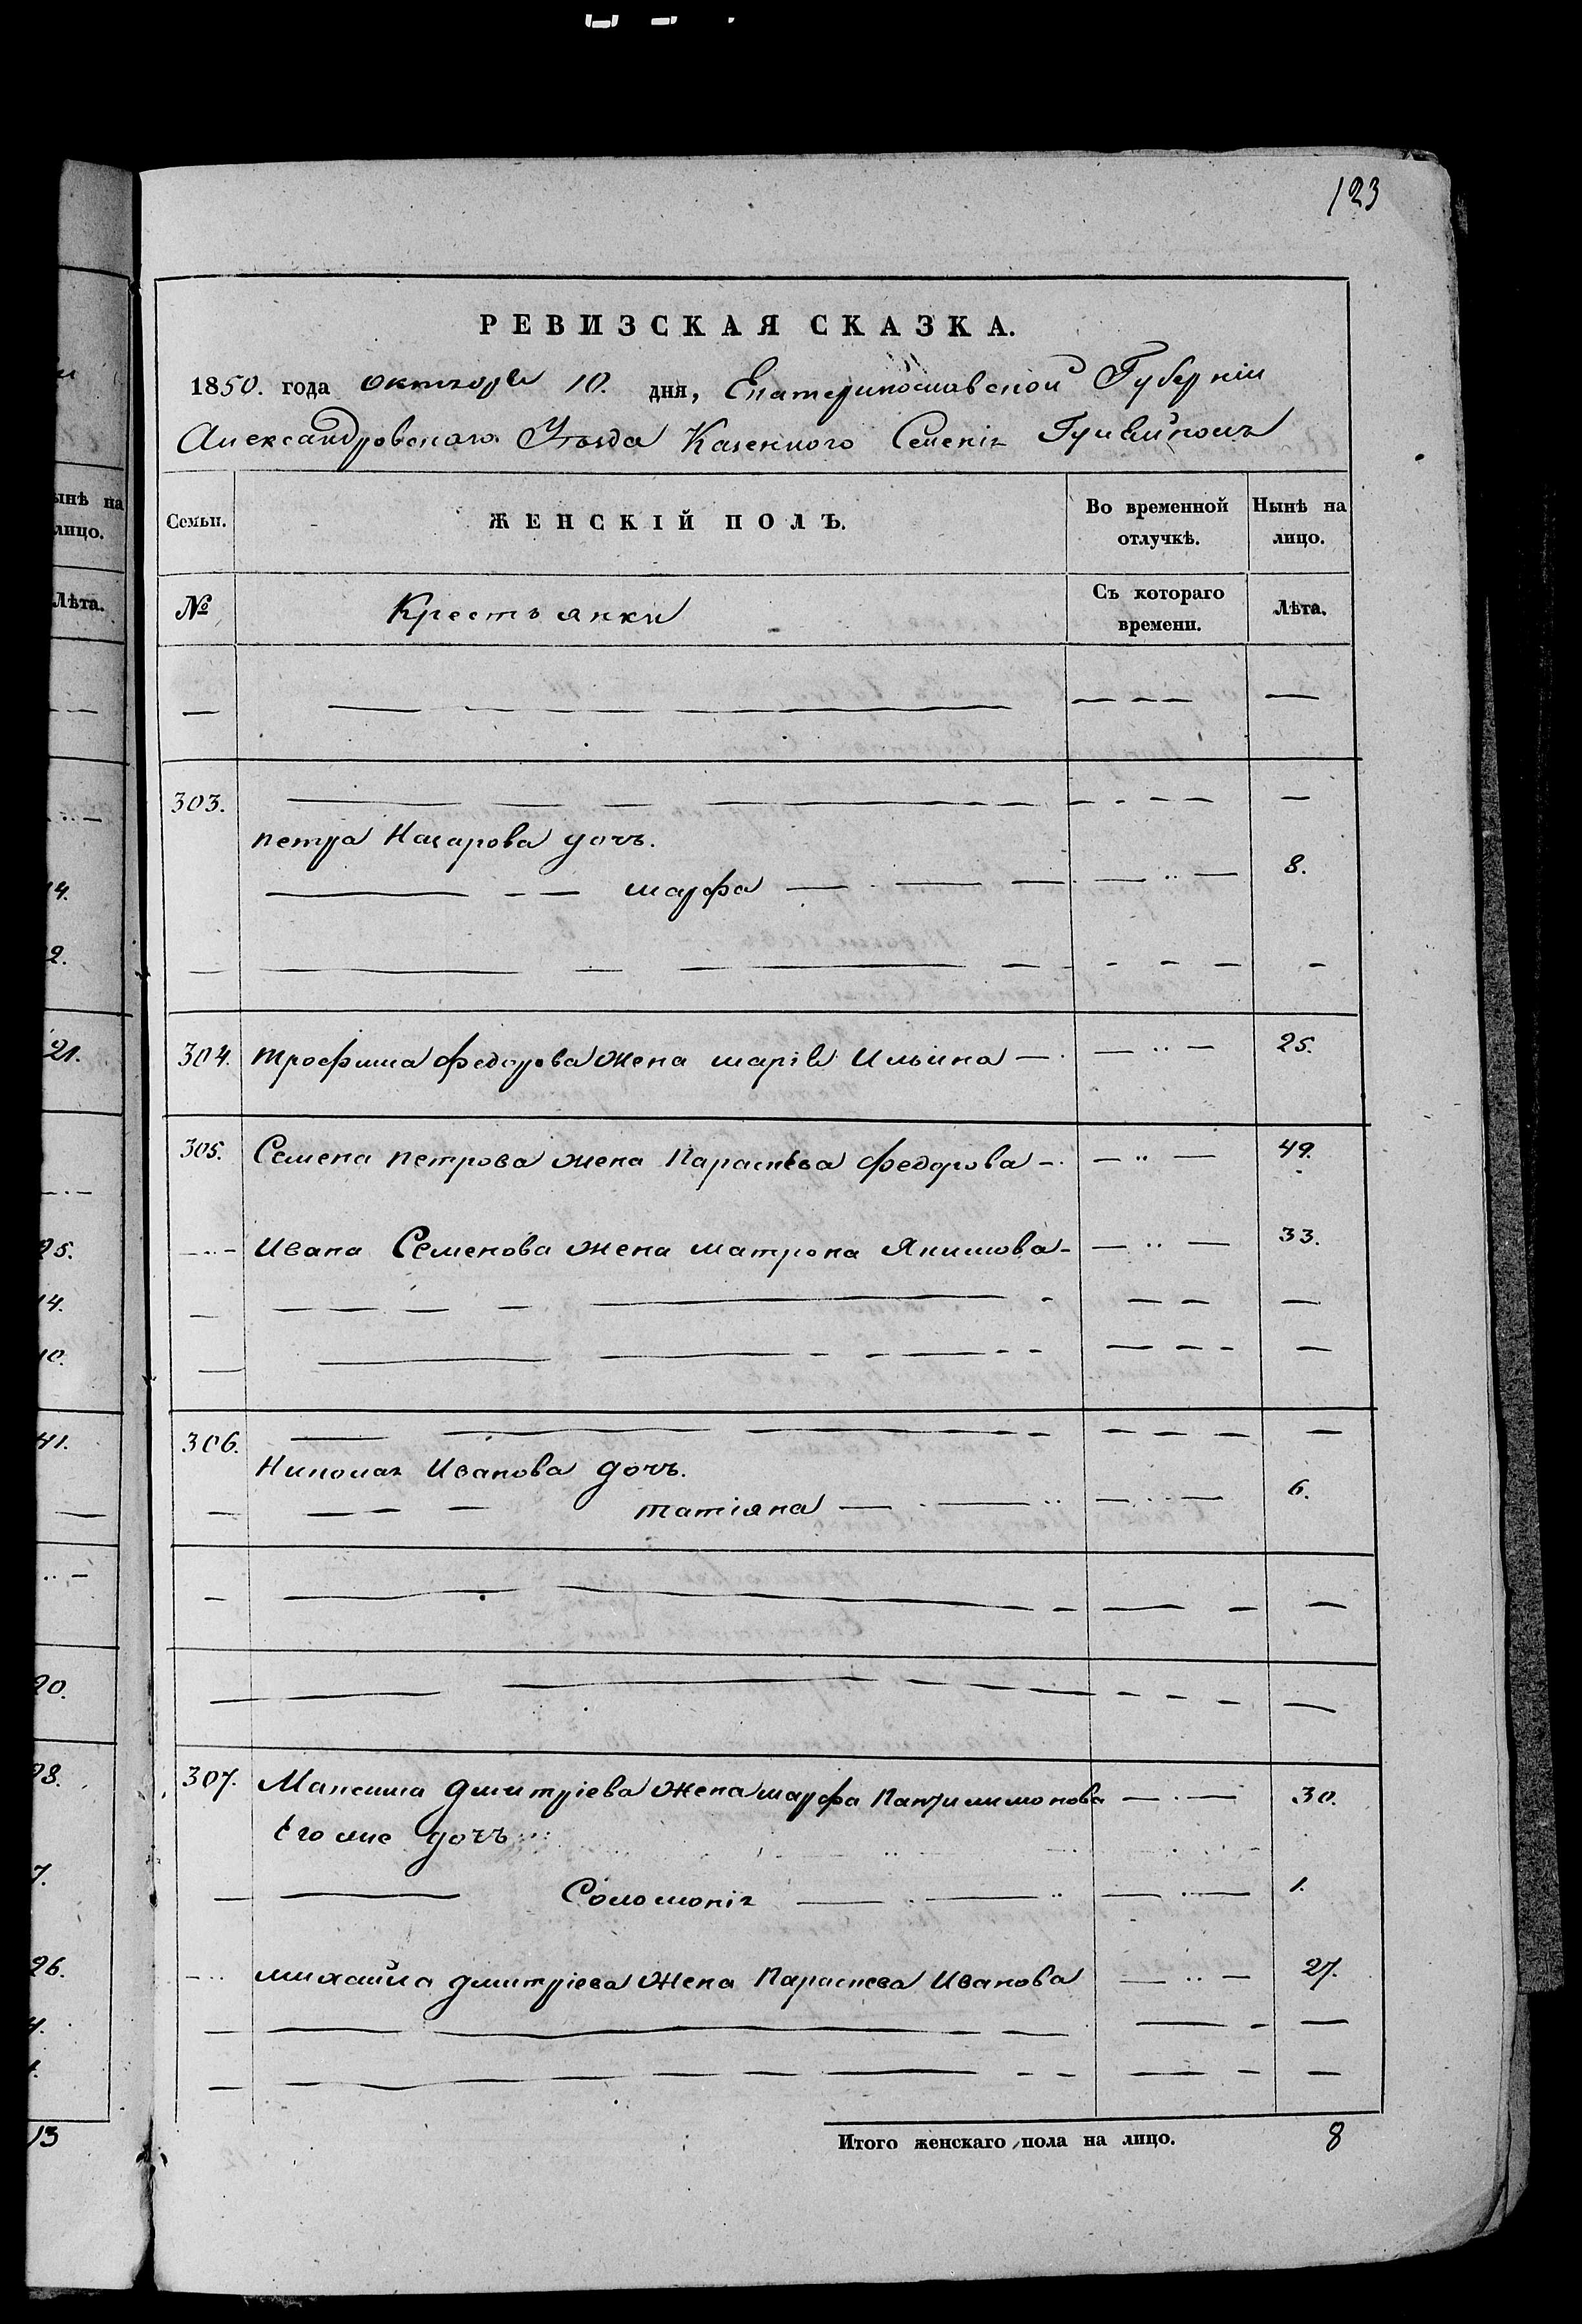 123
РЕВИЗСКАЯ СКАЗКА.
1850. года октября 10. дня, Екатеринославской Губерніи
Александровскаго Уѣзда Казенного Селенія Гуляйполя
Семьи. ЖЕНСКІЙ ПОЛЪ. Во временной отлучкѣ. Нынѣ на лицо.
№ Крестьянки Съ котораго времени. Лѣта.
303.
Петра Назарова дочь.
марфа 8.
304. Трофима Федорова жена марія Ильина 25.
305. Семена Петрова жена Параскева Федорова 49.
Ивана Семенова жена матрона Якимова 33.
306.
Николая Иванова дочь.
татіяна 6.
307. Максима Дмитріева жена марфа Пантилимонова 30.
Его же дочь
Соломонія 1.
михайла Дмитріева жена Параскева Иванова 27.
Итого женскаго пола на лицо. 8
ынѣ на
лицо.
Лѣта.
14.
2.
21.
25.
14.
10.
41.
20.
28.
7.
26.
13